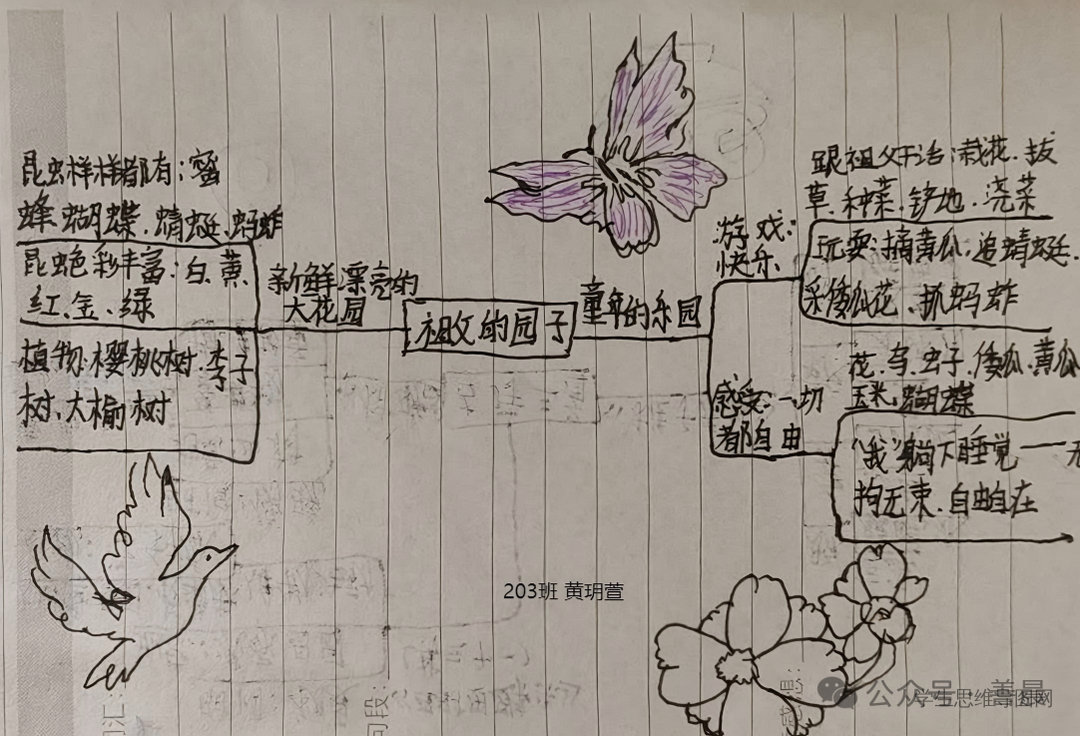 昆虫样样都有：蜜
蜂、蝴蝶、蜻蜓、蚂蚱
昆虫色彩丰富：白、黄、
红、金、绿
植物：樱桃树、李子
树、大榆树
新鲜漂亮的
大花园
祖父的园子
童年的乐园
游戏：
快乐
跟祖父干活：栽花、拔
草、种菜、铲地、浇菜
玩耍：摘黄瓜、追蜻蜓、
采倭瓜花、抓蚂蚱
感受：一切
都自由
花、鸟、虫子、倭瓜、黄瓜
玉米、蝴蝶
“我”躺下睡觉——无
拘无束、自由自在
203班 黄玥萱
公众号
学生思维导图网